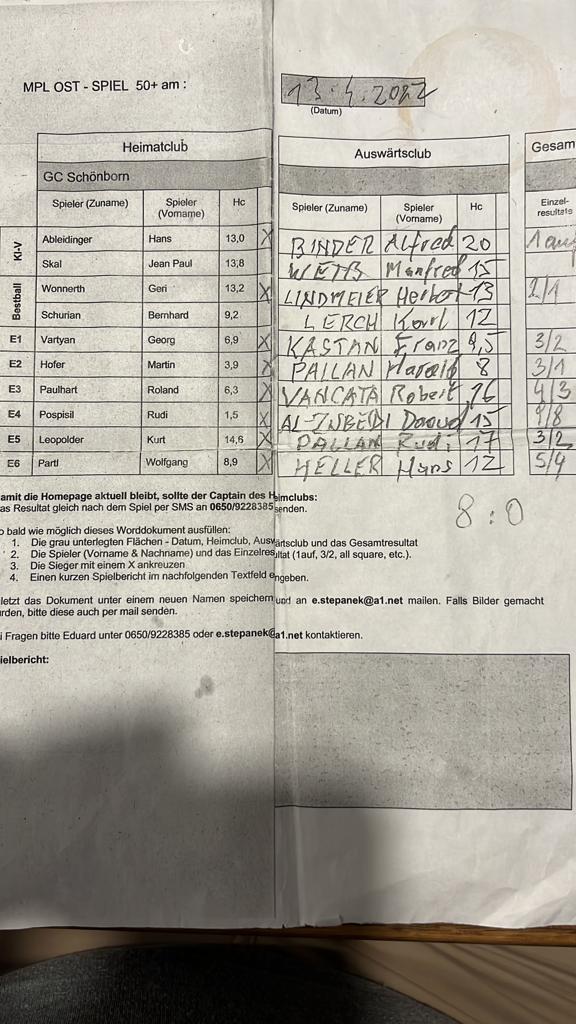 MPL OST - SPIEL 50+ am : 13.4.2022
(Datum)
Heimatclub Auswärtsclub Gesam
GC Schönborn
Spieler (Zuname) Spieler (Vorname) Hc Spieler (Zuname) Spieler (Vorname) Hc Einzel-resultate
KI-V Ableidinger Hans 13,0 X BINDER Alfred 20 1 auf
Skal Jean Paul 13,8 Manfred 15
Bestball Wonnerth Geri 13,2 X LINDMEIER Herbert 13 2/1
Schurian Bernhard 9,2 LERCH Karl 12
E1 Vartyan Georg 6,9 X KASTAN Franz 9,5 3/2
E2 Hofer Martin 3,9 X PAILAN Harald 8 3/1
E3 Paulhart Roland 6,3 X VANCATA Robert 16 4/3
E4 Pospisil Rudi 1,5 X Daoud 15 9/8
E5 Leopolder Kurt 14,6 X PALLAN Rudi 17 3/2
E6 Partl Wolfgang 8,9 X HELLER Hans 12 5/4
8:0
amit die Homepage aktuell bleibt, sollte der Captain des Heimclubs:
as Resultat gleich nach dem Spiel per SMS an 0650/9228385 senden.
o bald wie möglich dieses Worddokument ausfüllen:
1. Die grau unterlegten Flächen - Datum, Heimclub, Auswärtsclub und das Gesamtresultat
2. Die Spieler (Vorname & Nachname) und das Einzelresultat (1auf, 3/2, all square, etc.).
3. Die Sieger mit einem X ankreuzen
4. Einen kurzen Spielbericht im nachfolgenden Textfeld eingeben.
letzt das Dokument unter einem neuen Namen speichern und an e.stepanek@a1.net mailen. Falls Bilder gemacht
rden, bitte diese auch per mail senden.
i Fragen bitte Eduard unter 0650/9228385 oder e.stepanek@a1.net kontaktieren.
ielbericht: